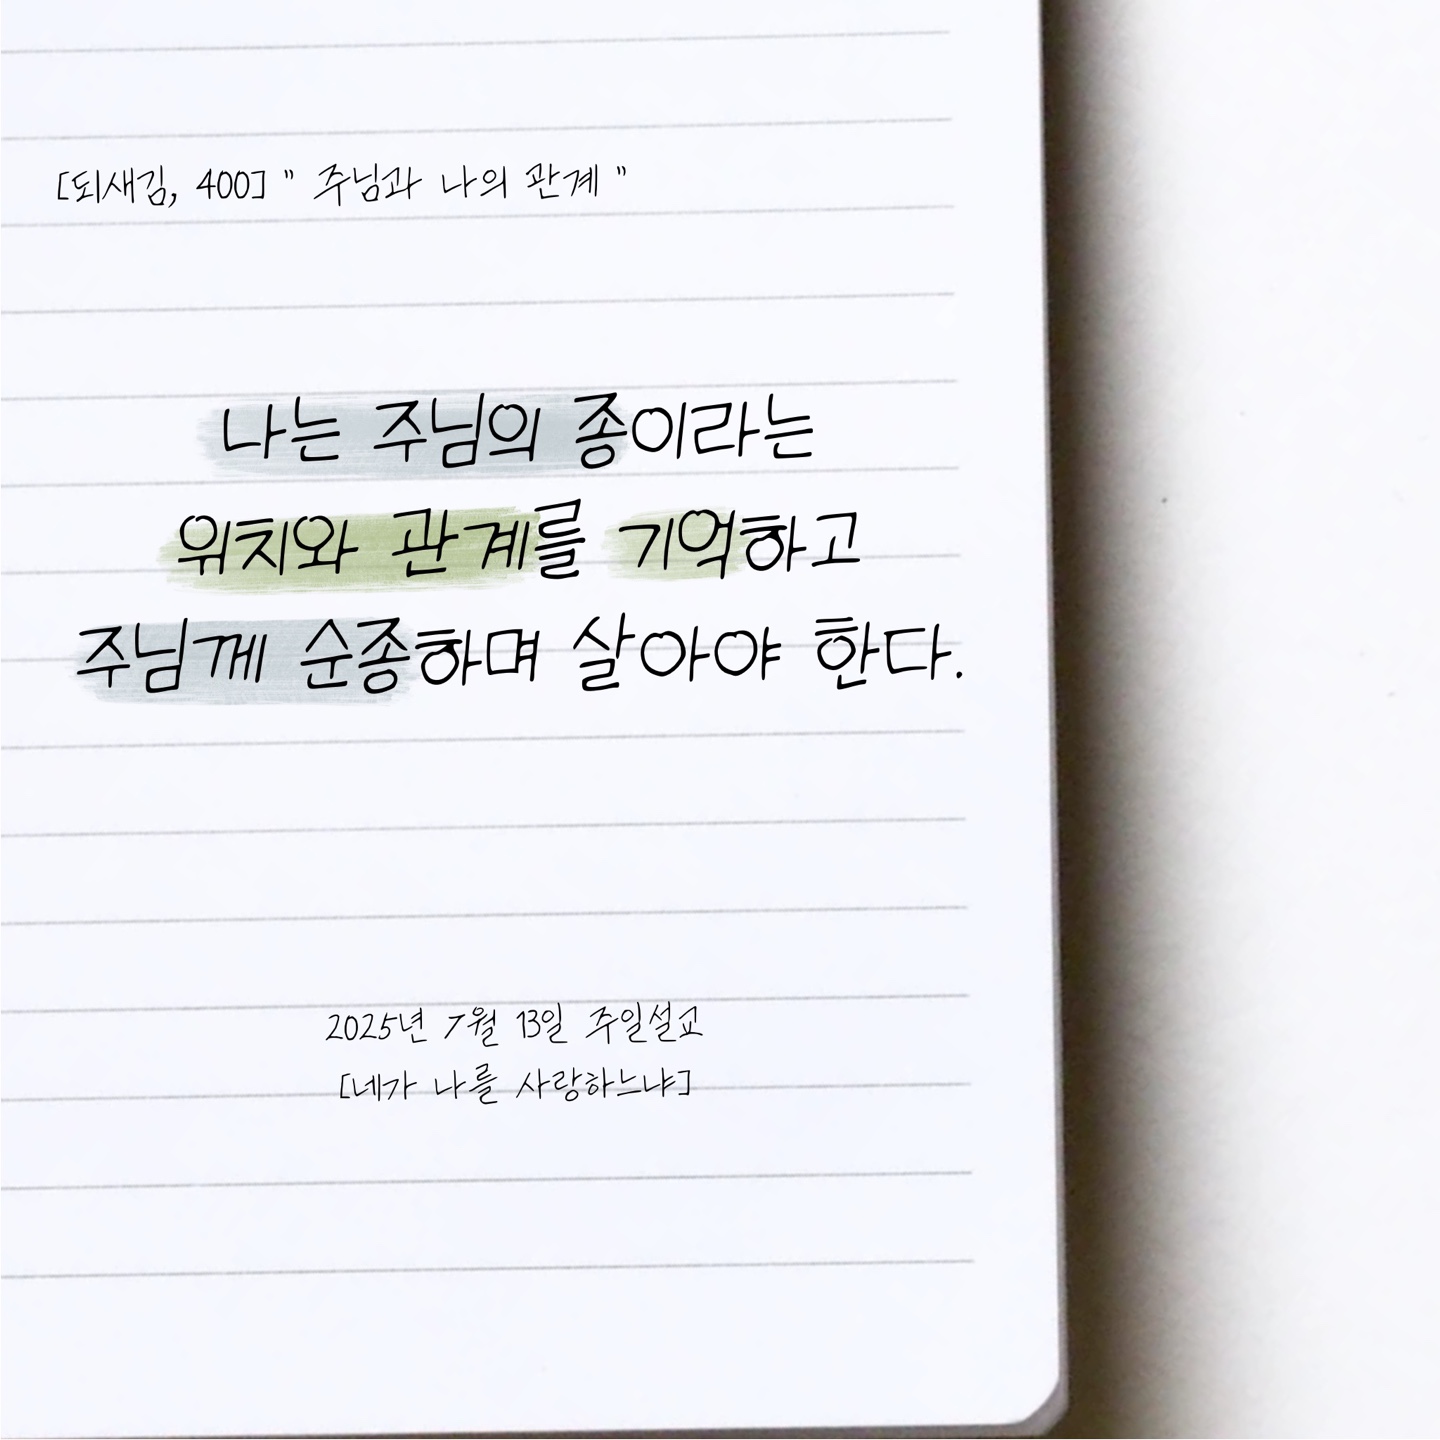 [되새김, 400] " 주님과 나의 관계 "
나는 주님의 종이라는
위치와 관계를 기억하고
주님께 순종하며 살아야 한다.
2025년 7월 13일 주일설교
[네가 나를 사랑하느냐]